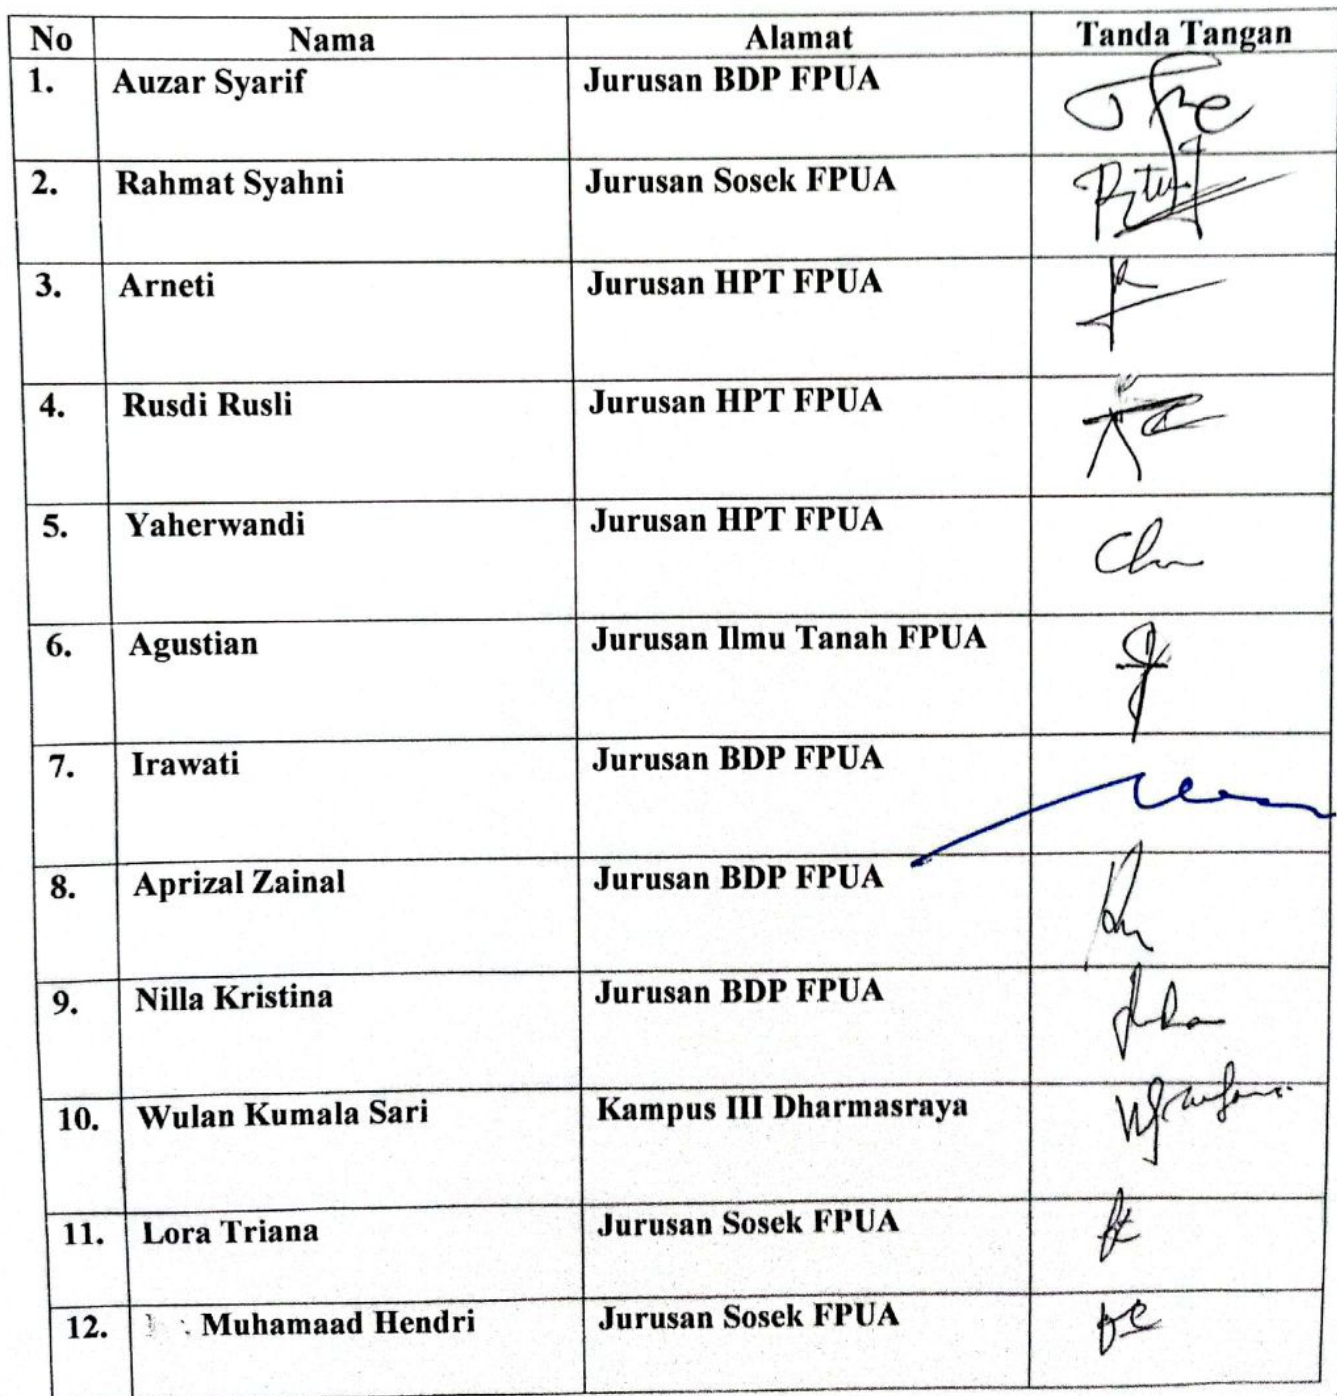 No Nama Alamat Tanda Tangan
1. Auzar Syarif Jurusan BDP FPUA
2. Rahmat Syahni Jurusan Sosek FPUA
3. Arneti Jurusan HPT FPUA
4. Rusdi Rusli Jurusan HPT FPUA
5. Yaherwandi Jurusan HPT FPUA
6. Agustian Jurusan Ilmu Tanah FPUA
7. Irawati Jurusan BDP FPUA
8. Aprizal Zainal Jurusan BDP FPUA
9. Nilla Kristina Jurusan BDP FPUA
10. Wulan Kumala Sari Kampus III Dharmasraya
11. Lora Triana Jurusan Sosek FPUA
12. Muhamaad Hendri Jurusan Sosek FPUA